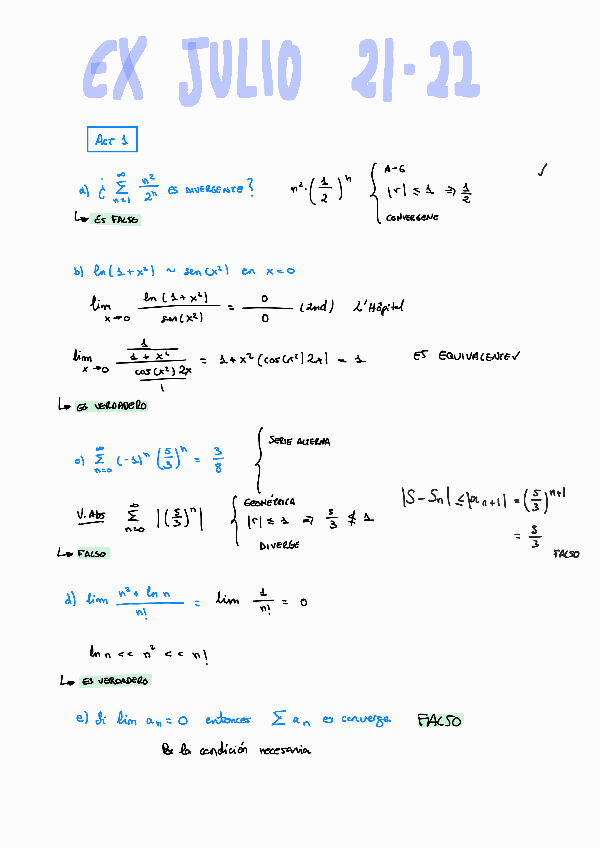 EX JULIO 21-22
Act 1
a) ¿ ∑_{n=1}^{∞} n²/2ⁿ ES DIVERGENTE? n²·(1/2)ⁿ { A-G
|r| ≤ 1 ⇒ 1/2 ✓
CONVERGENE
↳ ES FALSO
b) ln(1+x²) ~ sen(x²) en x=0
lim_{x→0} ln(1+x²)/sen(x²) = 0/0 (Ind) L'Hôpital
lim_{x→0} (1/(1+x²))/(cos(x²)2x/1) = 1+x²(cos(x²)2x) = 1 ES EQUIVALENCE✓
↳ ES VERDADERO
c) ∑_{n=0}^{∞} (-1)ⁿ (5/3)ⁿ = 3/8 { SERIE ALTERNA
V.Abs ∑_{n=0}^{∞} |(5/3)ⁿ| { GEOMÉTRICA
|r| ≤ 1 ⇒ 5/3 ≰ 1
DIVERGE
|S-Sₙ| ≤ |aₙ₊₁| = (5/3)ⁿ⁺¹
= 5/3
FALSO
↳ FALSO
d) lim (n²+ln n)/n! = lim 1/n! = 0
ln n << n² << n!
↳ ES VERDADERO
e) Si lim aₙ=0 entonces ∑ aₙ es converge FALSO
la condición necesaria